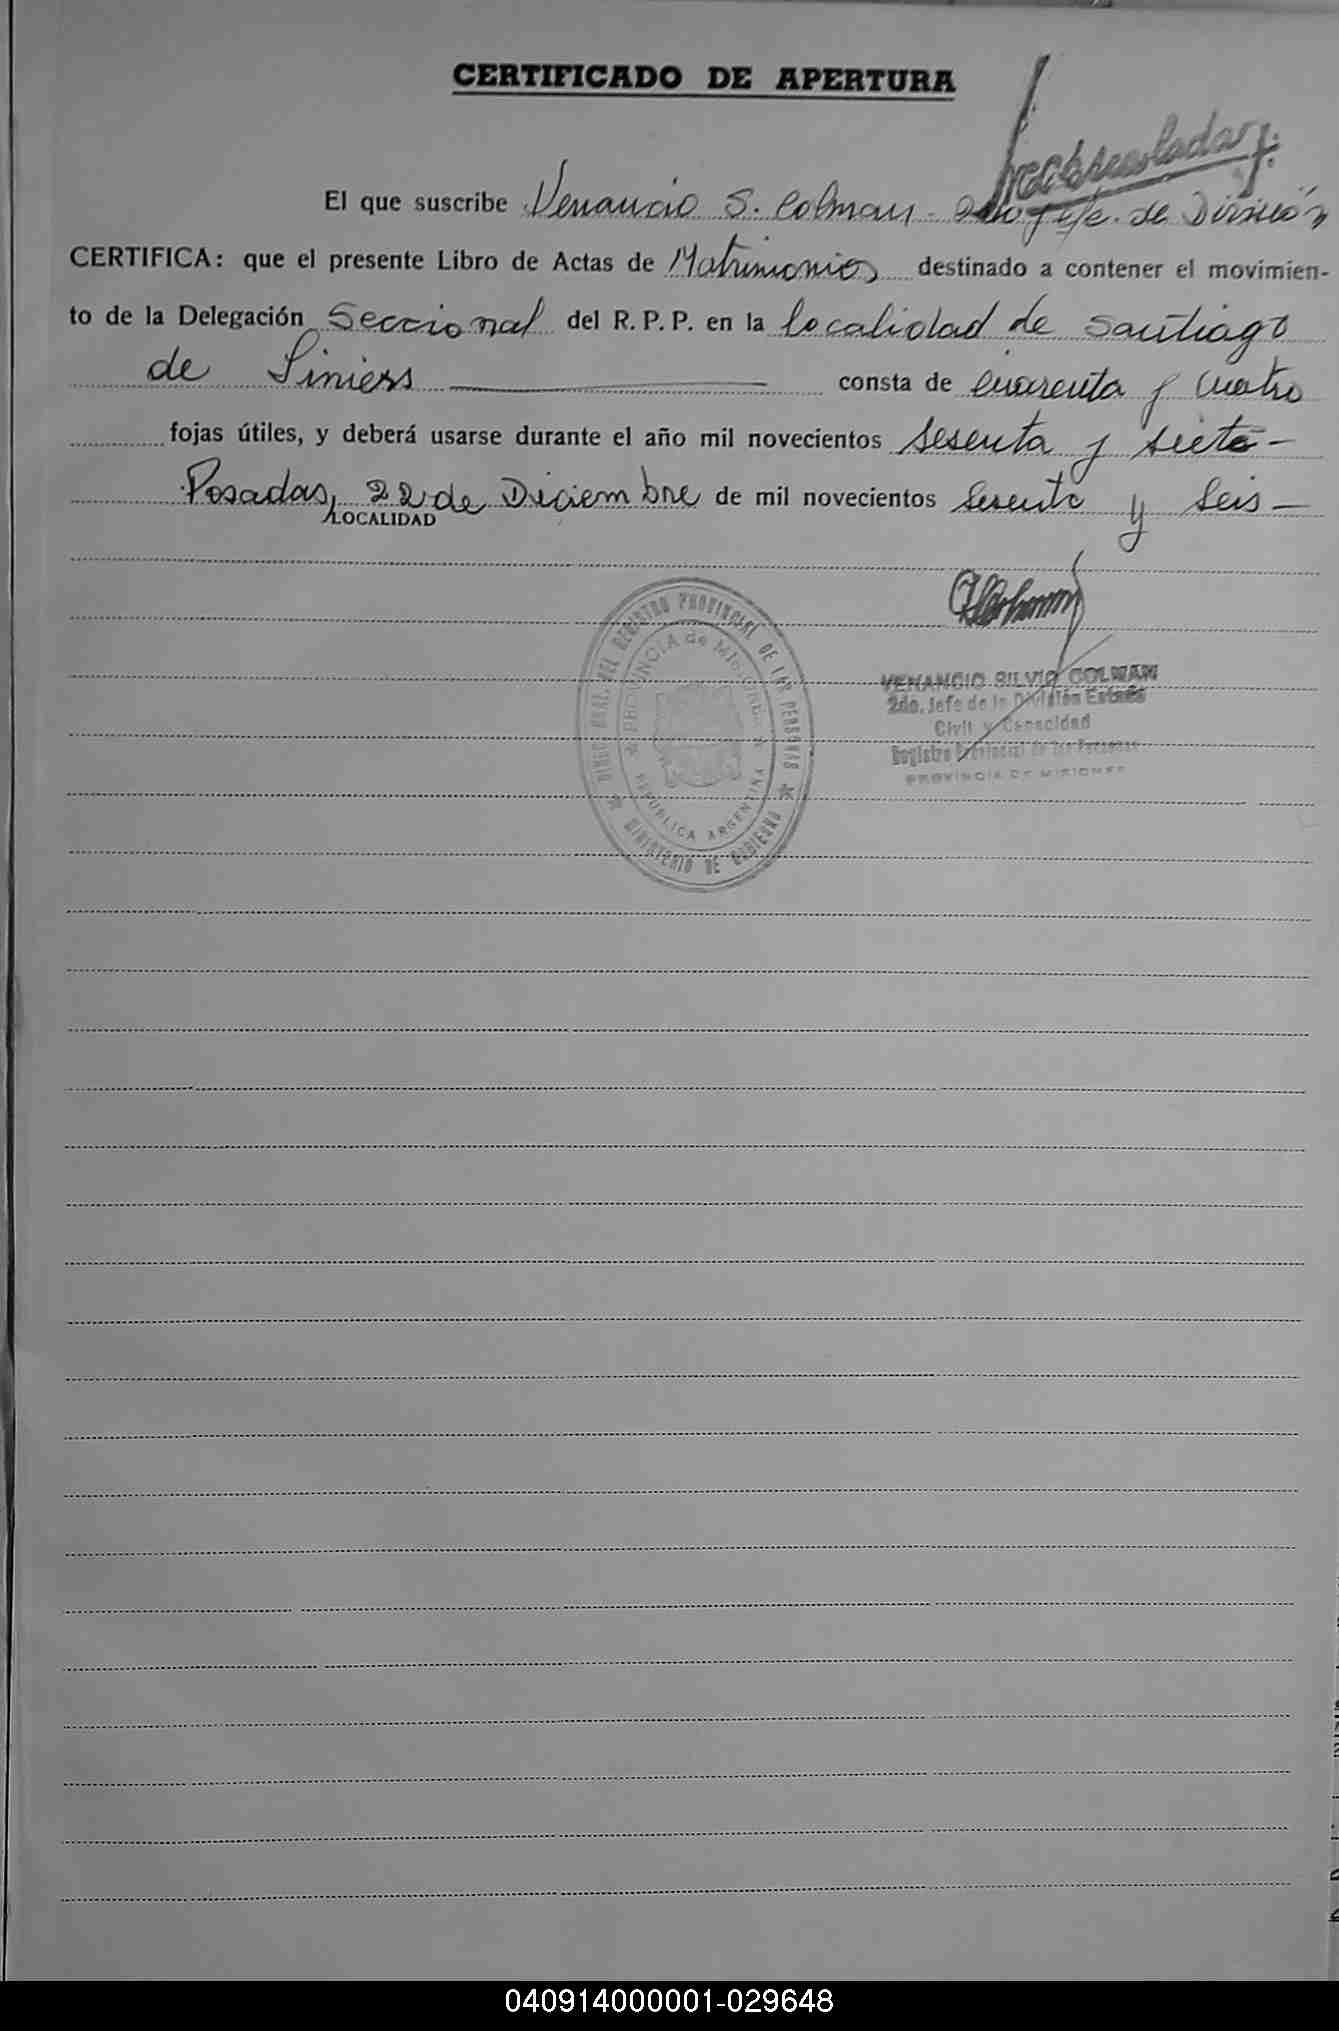 CERTIFICADO DE APERTURA
El que suscribe Venancio S. Colman - 2do Jefe de División
CERTIFICA: que el presente Libro de Actas de Matrimonios destinado a contener el movimien-
to de la Delegación Seccional del R. P. P. en la localidad de Santiago
de Liniers consta de cuarenta y cuatro
fojas útiles, y deberá usarse durante el año mil novecientos sesenta y siete -
Posadas, 22 de Diciembre de mil novecientos sesenta y seis -
LOCALIDAD
DIREC. GRAL. DEL REGISTRO PROVINCIAL DE LAS PERSONAS
PROVINCIA de MISIONES
REPUBLICA ARGENTINA
MINISTERIO DE GOBIERNO
VENANCIO SILVIO COLMAN
2do. Jefe de la División Estado
Civil y Capacidad
Registro Provincial de las Personas
PROVINCIA DE MISIONES
040914000001-029648